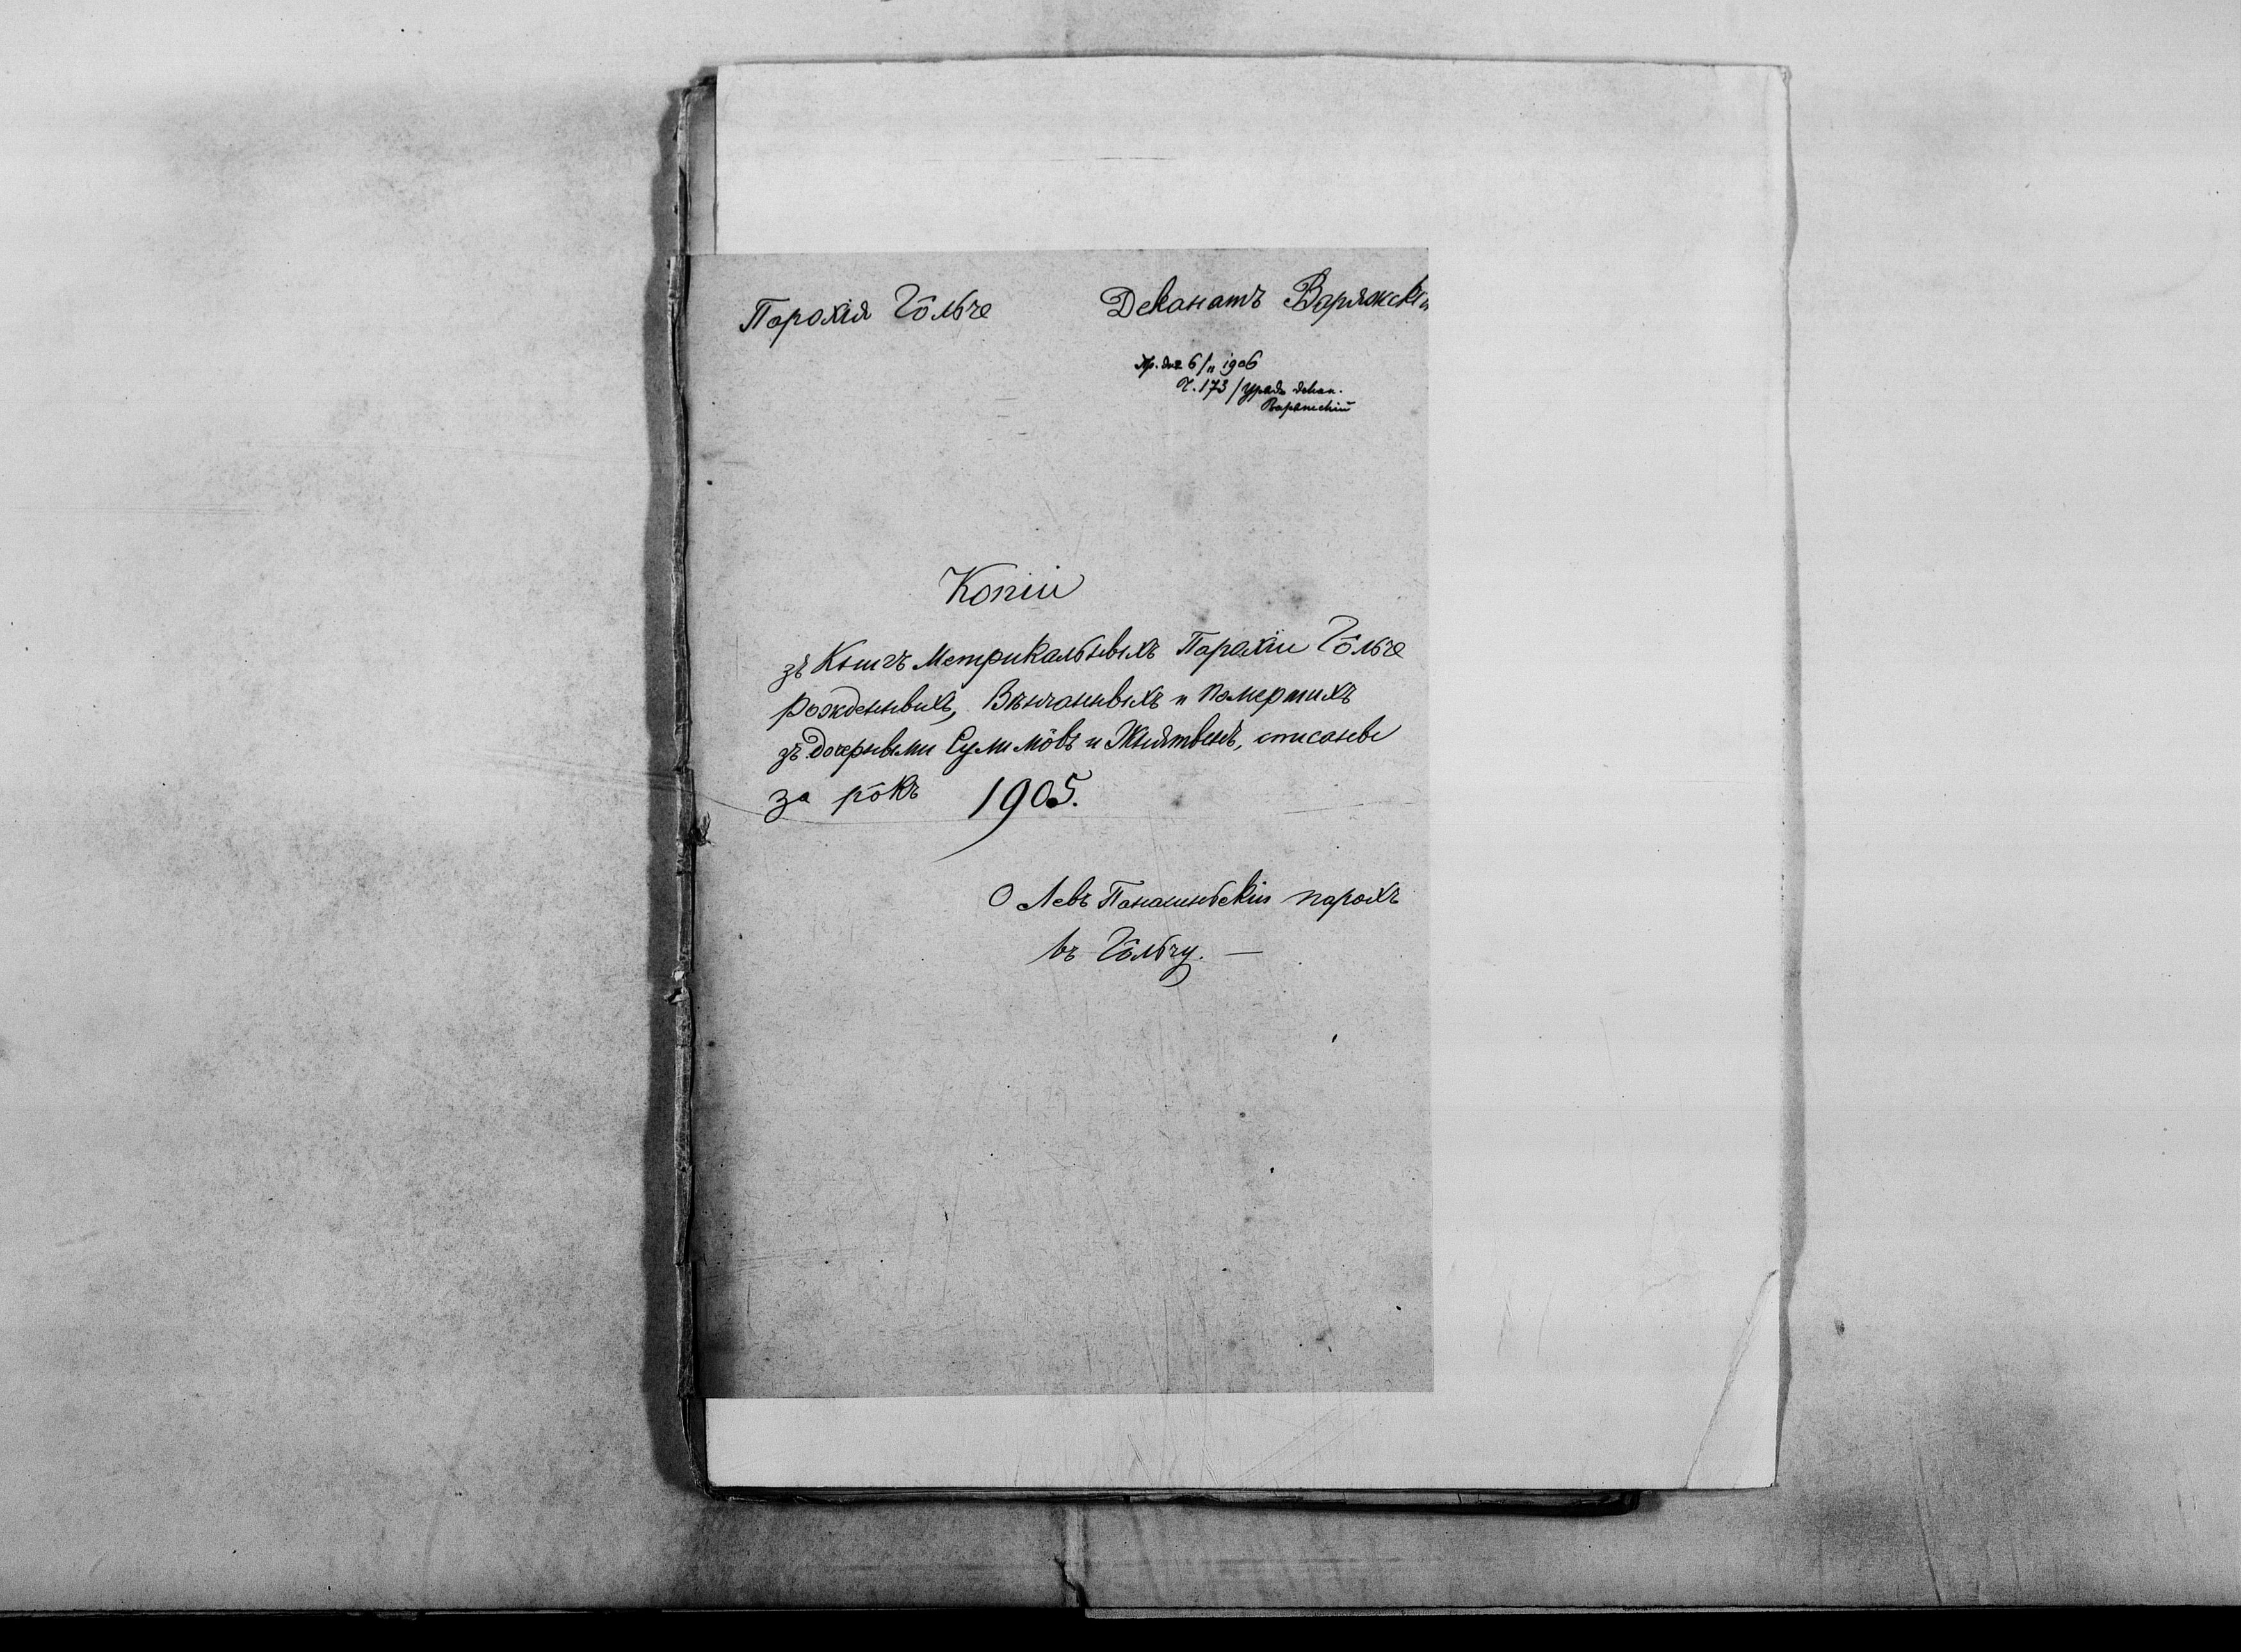 Парохія Гôльче
Деканатъ Варяжскі
Пр. дня 6/II 1906
Ч. 173 / Урядъ декан.
Варяжскій
Копіи
зъ Книгъ Метрикальныхъ Парохіи Гôльче
рожденныхъ, Вѣнчанныхъ и Помершихъ
зъ дочерными Сулимôвъ и Жнятынъ, списаны
за рôкъ 1905.
О Левъ парохъ
въ Гôльчу. —